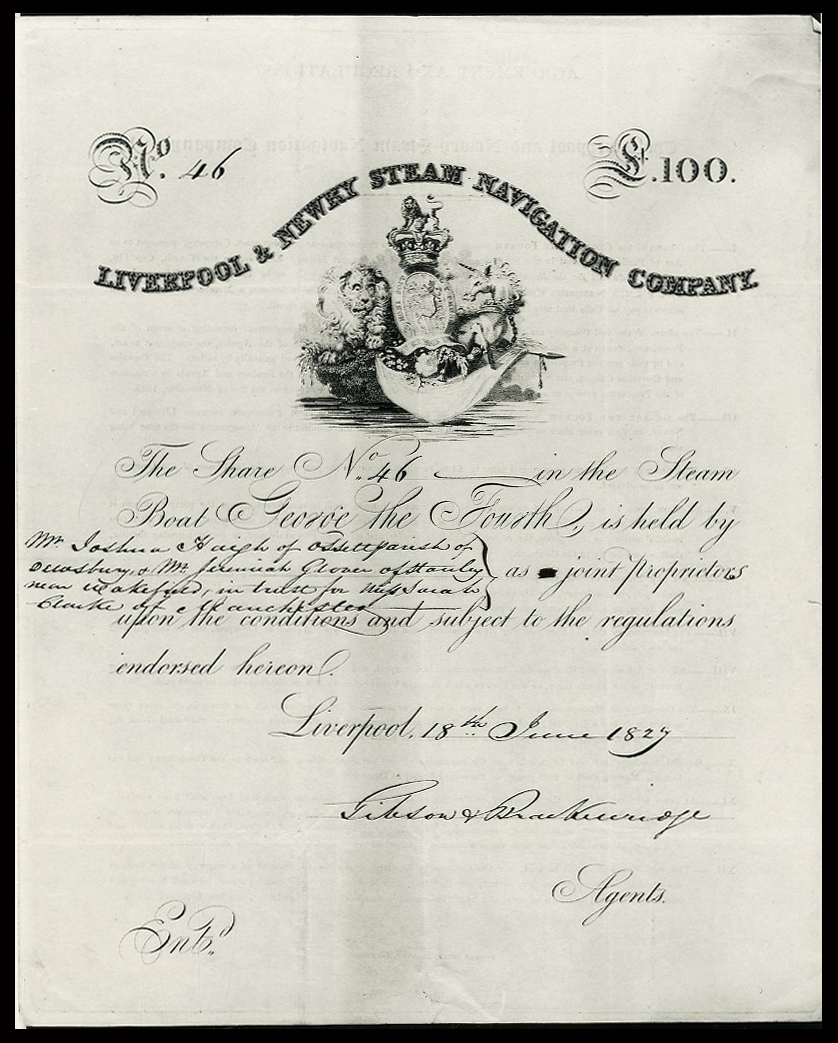 No. 46
£.100.
LIVERPOOL & NEWRY STEAM NAVIGATION COMPANY.
The Share No. 46 in the Steam
Boat George the Fourth, is held by
Mr. Joshua Haigh of Ossett parish of
Dewsbury, & Mr. Jeremiah Glover of Stanley
near Wakefield, in trust for Miss Sarah
Clarke of Manchester
as joint Proprietors
upon the conditions and subject to the regulations
endorsed hereon.
Liverpool, 18th June 1827
Gibson & Brackenridge
Agents.
Entd.